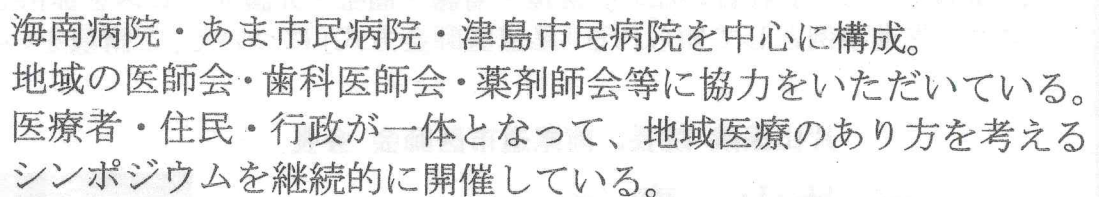 海南病院・あま市民病院・津島市民病院を中心に構成。
地域の医師会・歯科医師会・薬剤師会等に協力をいただいている。
医療者・住民・行政が一体となって、地域医療のあり方を考える
シンポジウムを継続的に開催している。